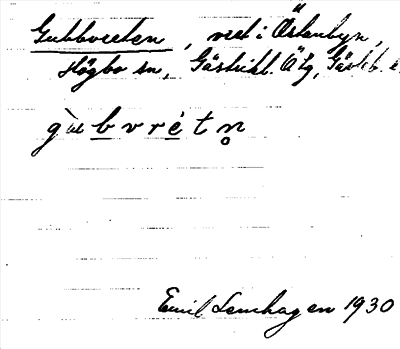 Gubbvreten, vret i Östanbyn,
Högbo sn, Gästrikl. Ö tg, Gävleb. l.
gu̇bvrètn̥
Emil Lenhagen 1930